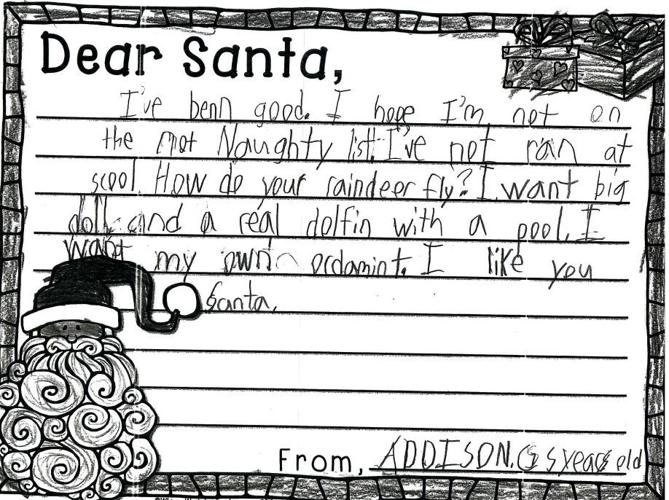 Dear Santa,
I've benn good. I hope I'm not on
the not Naughty list. I've not ran at
scool. How do your raindeer fly? I want big
doll and a real dolfin with a pool. I
want my own ordamint. I like you
Santa.
From, ADDISON. 5 years old